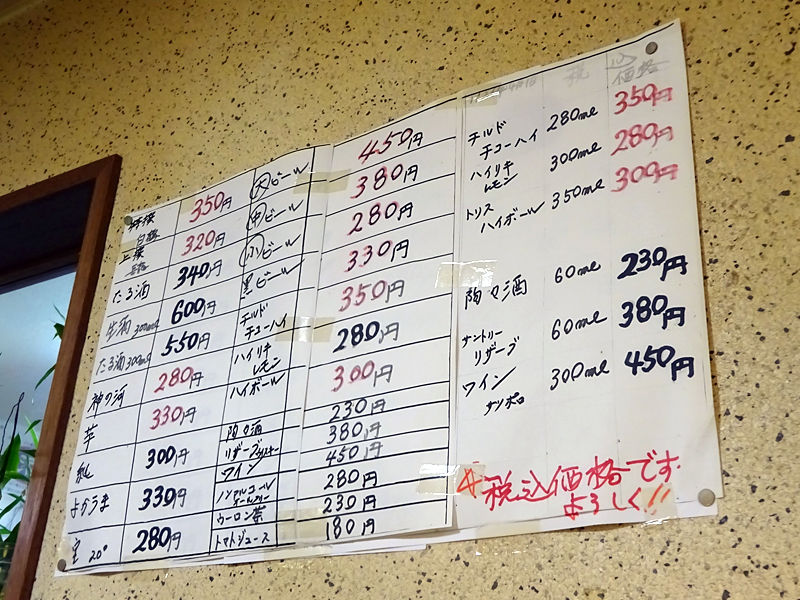 上撰 350円
白鶴
上撰 320円
たる酒 340円
生酒 300ml 600円
たる酒 300ml 550円
神の河 280円
芋 330円
300円
よかうま 330円
宝 20° 280円
大ビール 450円
中ビール 380円
小ビール 280円
黒ビール 330円
チルド
チューハイ 350円
ハイリキ
レモン 280円
ハイボール 300円
陶々酒 230円
リザーブウイスキー 380円
ワイン 450円
ノンアルコール 280円
ウーロン茶 230円
トマトジュース 180円
税込
価格
チルド
チューハイ 280ml 350円
ハイリキ
レモン 300ml 280円
トリス
ハイボール 350ml 300円
陶々酒 60ml 230円
サントリー
リザーブ 60ml 380円
ワイン 300ml 450円
サッポロ
税込価格です
よろしく!!